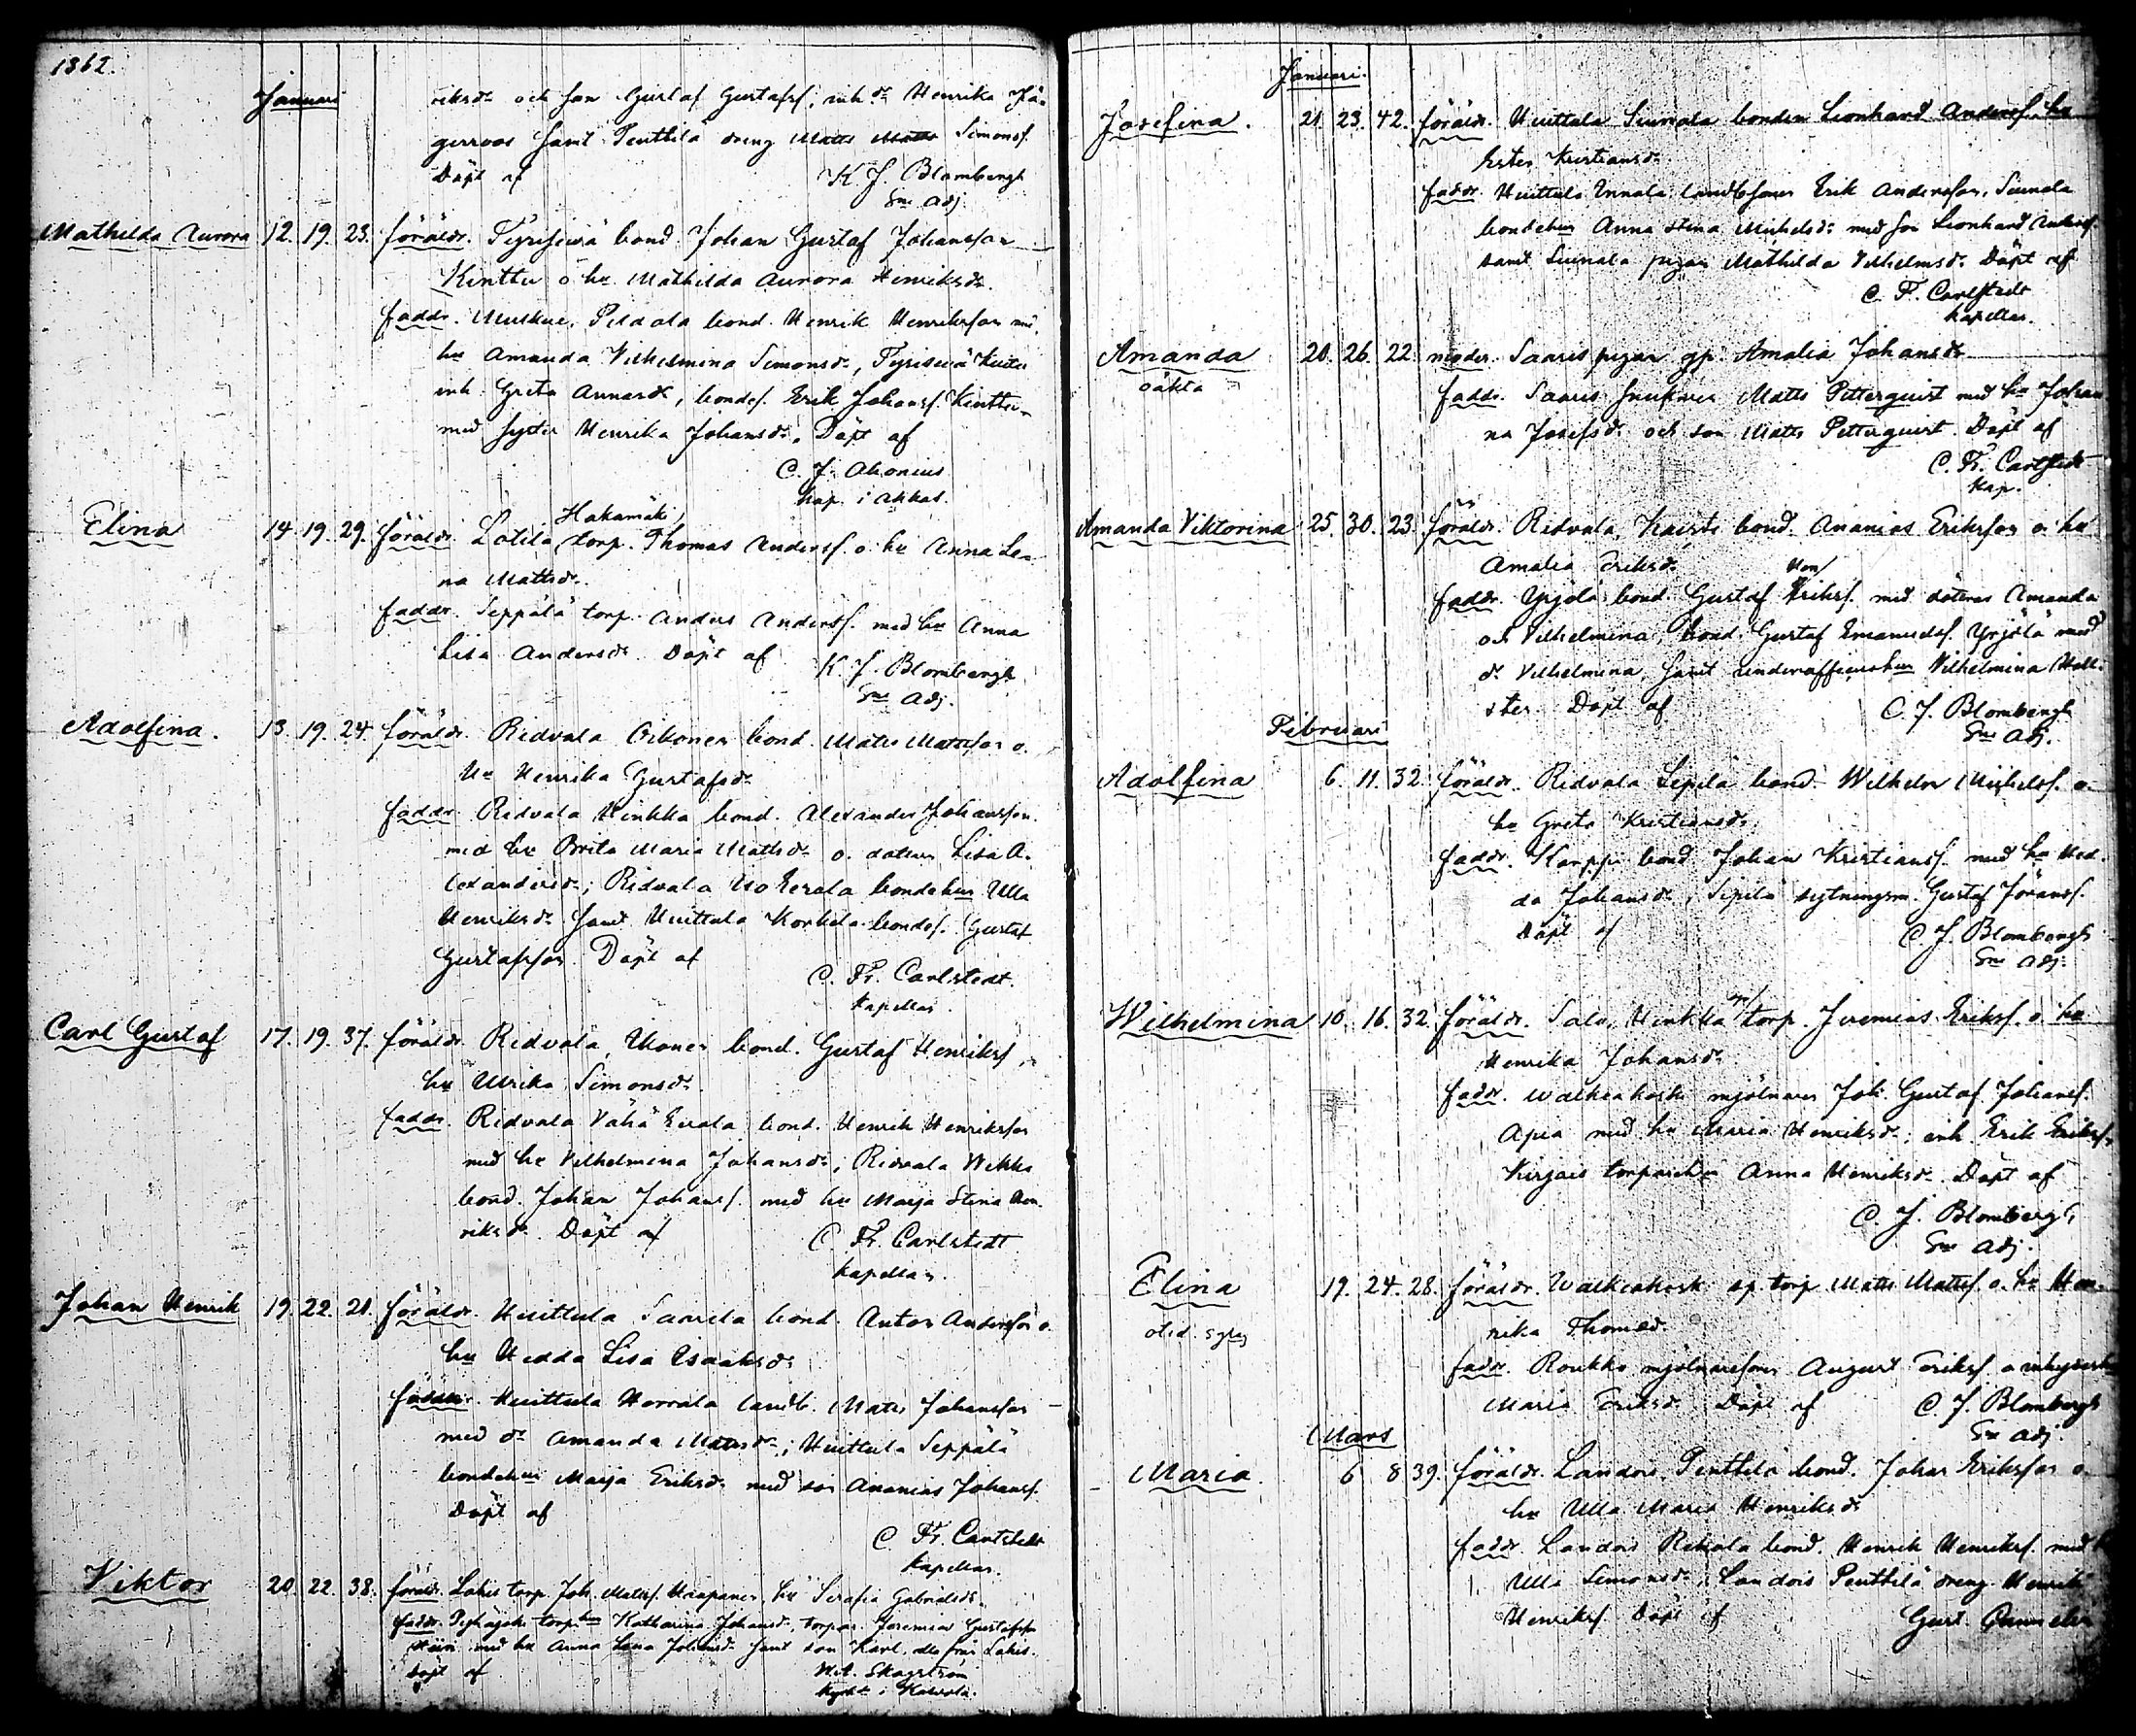 1862.
Januari
riksdr och son Gustaf Gustafsf, inhdr Henrika Jä-
gerroos samt Penttilä dreng Matts Simonsf.
Döpt af K J. Blombergh
Sne Adj.
Mathilda Aurora 12. 19. 23. föräldr. bond. Johan Gustaf Johansson
Kinttu o hu Mathilda Aurora Henriksdr
faddr. Muskue, Peldola bond. Henrik Henriksson
hu Amanda Vilhelmina Simonsdr,
inh. Greta Annasdr, bondes. Erik Johansf. Kinttu
med syster Henrika Johansdr. Döpt af
C. J. Ahonius
Kap. i Akkas.
Hakamäki
Elina 14. 19. 29. föräldr. Lotila torp. Thomas Andersf. o. hu Anna Le-
na Mattsdr.
faddr. Seppälä torp. Anders Andersf. med hu Anna
Lisa Andersdr Döpt af K. J. Blombergh
Sne Adj.
Adolfina. 13. 19. 24. föräldr. Ridvala Oikonen bond. Matts Mattsson o.
hu Henrika Gustafsdr
faddr. Ridvala Hinkka bond. Alexander Johansson
med hu Brita Maria Mattsdr o. dotter Lisa A-
lexandersdr; Ridvala bondehu Ulla
Henriksdr samt Huittula Korkola bondes. Gustaf
Gustafsson Döpt af
C. Fr. Carlstedt.
Kapellan.
Carl Gustaf 17. 19. 37. föräldr. Ridvala, Ukonen bond. Gustaf Henriksf,
hu Ulrika Simonsdr.
faddr. Ridvala Vähä Eerala bond. Henrik Henriksson
med hu Vilhelmina Johansdr; Ridvala Wekka
bond. Johan Johansf. med hu Maja Stina Hen-
riksdr. Döpt af C. Fr. Carlstedt
Kapellan.
Johan Henrik 19. 22. 21. föräldr. Huittula bond. Anton Andersson o.
hu Hedda Lisa Isaaksdr
faddr. Huittula Horrala landb. Matts Johansson
med dr Amanda Mattsdr; Huittula Seppälä
bondehu Maja Eriksdr med son Ananias Johansf.
Döpt af
C Fr. Carlstedt
Kapellan.
Viktor 20. 22. 38. föräldr. Lahis torp. Joh. Mattsf. Haapanen, hu Serafia Gabrielsdr.
faddr. torp.hu Katharina Johansdr, torpar. Jeremias Gustafsson
med hu Anna Lena Johansdr samt son Karl, alla från Lahis.
Döpt af Skogström
i Kalvola.
Januari.
Josefina. 21. 23. 42. föräldr. Huittula Siunala bonden Leonhard Andersf. hu
Ester Kristiansdr.
faddr. Huittula Ennala landb.sonen Erik Andersson, Siunala
bondehu Anna Stina Michelsdr med son Leonhard Andersf.
samt Siunala pigan Mathilda Vilhelmsdr. Döpt af
C. F. Carlstedt
Kapellan.
Amanda 20. 26. 22. moder. Saaris pigan Amalia Johansdr
oäkta
faddr. Saaris Matts Petterquist med hu Johan-
na Josefsdr och son Matts Petterquist. Döpt af
C. Fr. Carlstedt
Kap.
Amanda Viktorina 25. 30. 23. föräldr. Ridvala, bond. Ananias Eriksson o. hu
Amalia Eriksdr
faddr. Yrjölä bond. Gustaf Eriksf. med döttrar Amanda
och Vilhelmina, bond. Gustaf Emanuelsf. Yrjölä med
dr Vilhelmina, samt underofficershu Vilhelmina
Döpt af C. J. Blombergh
Sne Adj.
Februari
Adolfina 6. 11. 32. föräldr. Ridvala Sepilä bond. Wilhelm Michelsf. o.
hu Greta Kristiansdr
faddr. Karppi bond. Johan Kristiansf. med hu Hed-
da Johansdr, Sepilä sytningsm. Gustaf Göransf.
Döpt af C. J. Blombergh
Sne Adj.
Wilhelmina 10. 16. 32. föräldr. Salo, Hinkka torp. Jeremias Eriksf. o. hu
Henrika Johansdr
faddr. Walkeakoski mjölnaren Joh. Gustaf Johansf.
med hu Maria Henriksdr; inh. Erik Eriksf,
torparehu Anna Henriksdr. Döpt af
C. J. Blombergh
Sne Adj.
Elina 19. 24. 28. föräldr. Walkeakoski torp Matts Mattsf. o. hu Hen-
rika Thomasdr.
faddr. Roukko mjölnaresonen August Eriksf.
Maria Eriksdr. Döpt af C. J. Blombergh
Sne Adj
Mars
Maria. 6 8 39. föräldr. Landois, Penttilä bond. Johan Eriksson o.
hu Ulla Maria Henriksdr
faddr. Landois Rekola bond. Henrik Henriksf. med
Ulla Simonsdr, Landois Penttilä dreng Henrik
Henriksf. Döpt af Gust.